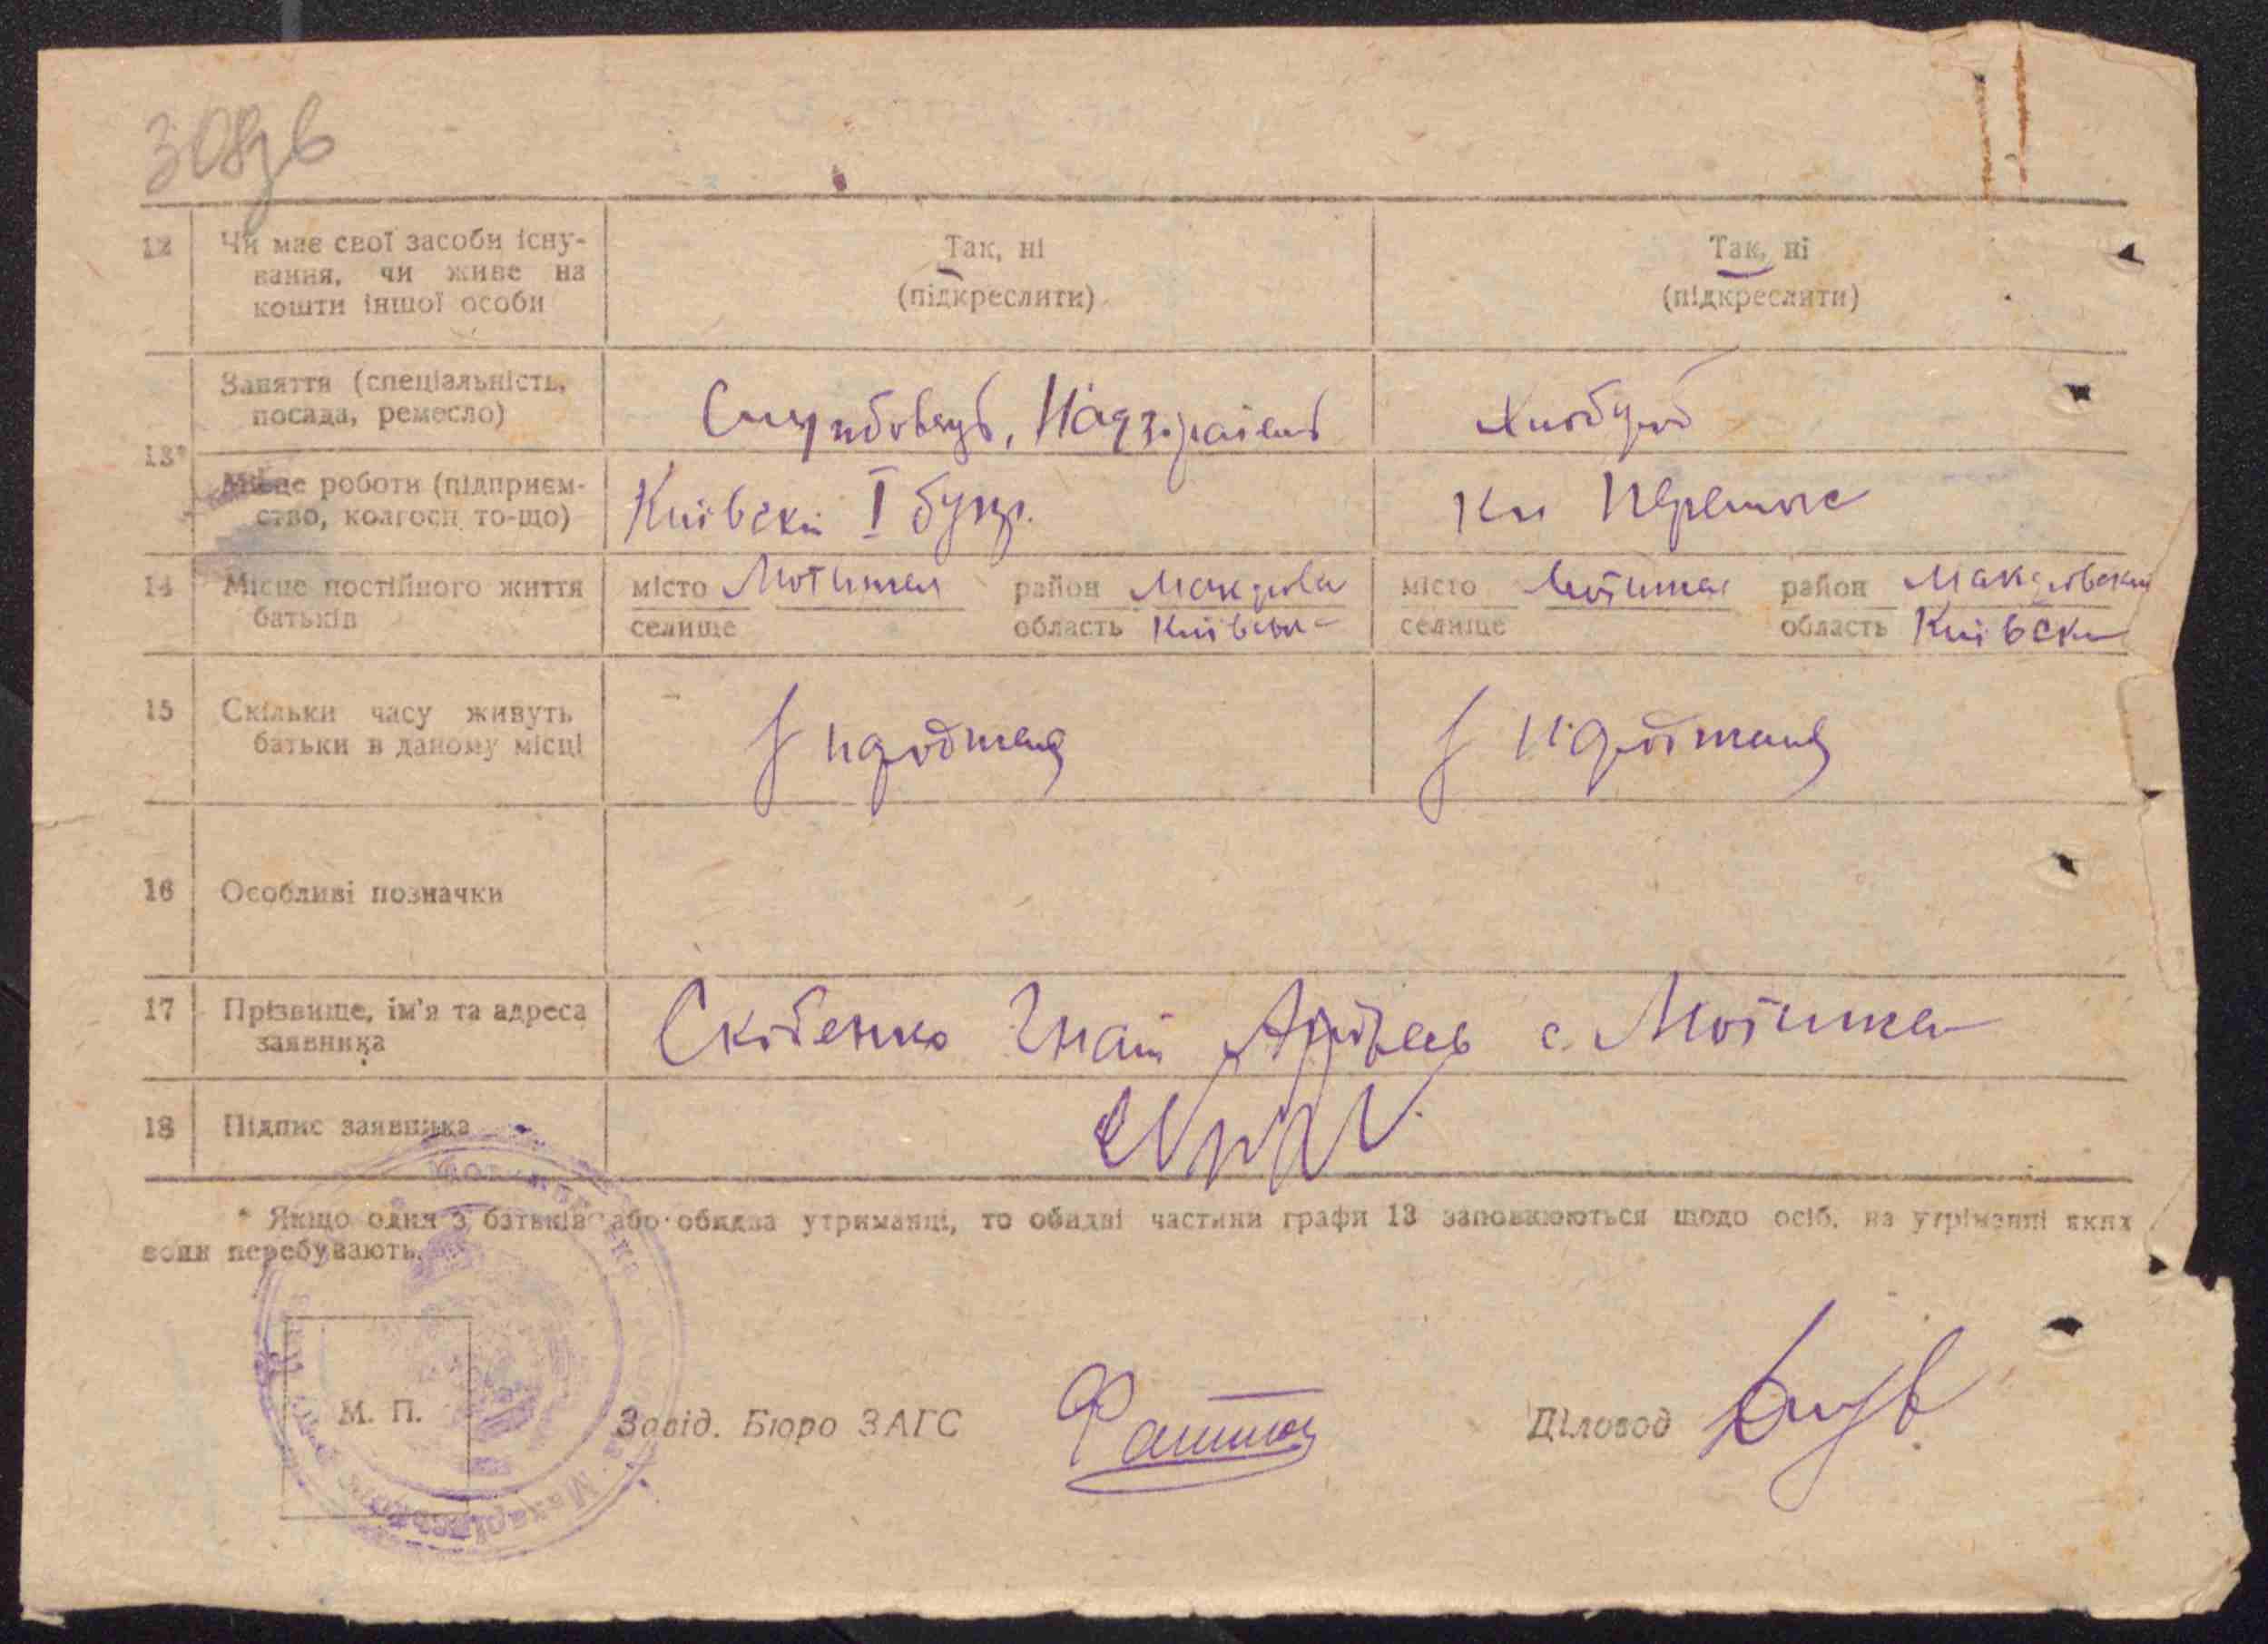 308зв
12 Чи має свої засоби існу-
вання, чи живе на
кошти іншої особи
Так, ні
(підкреслити)
Так, ні
(підкреслити)
13*
Заняття (спеціальність,
посада, ремесло)
Службовець, Надзиратель
Хлібороб
Місце роботи (підприєм-
ство, колгосп то-що)
Київськ I
14 Місце постійного життя
батьків
місто Мотижин район Макарівськ
селище область Київська
місто Мотижин район Макарівський
селище область Київська
15 Скільки часу живуть
батьки в даному місці
з народження
з народження
16 Особливі позначки
17 Прізвище, ім'я та адреса
заявника
Скібенко Гнат с. Мотижин
18 Підпис заявника
* Якщо один з батьків або обидва утриманці, то обидві частини графи 13 заповнюються щодо осіб, на утриманні яких
вони перебувають.
М. П.
Завід. Бюро ЗАГС
Діловод